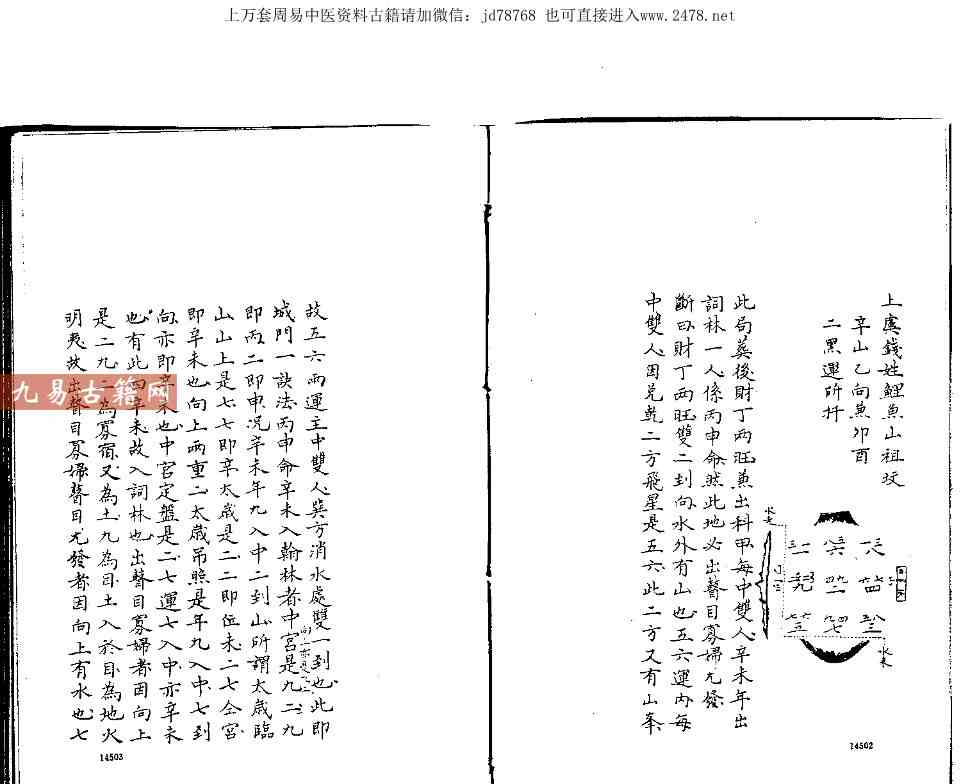 上万套周易中医资料古籍请加微信：jd78768 也可直接进入www.2478.net
上虞錢姓鯉魚山祖坟
辛山乙向兼卯酉
二黑運所扦
水去
水來
此局葬後財丁兩旺兼出科甲每中雙人辛未年出
詞林一人係丙申命然此地必出瞽目寡婦尤發
斷曰財丁兩旺雙二到向水外有山也五六運內每
中雙人因兌乾二方飛星是五六此二方又有山峯
14502
故五六兩運王中雙人巽方消水處雙一到也此即
城門一訣法丙申命辛未入翰林者中宮是九二九
即丙二即申況辛未年九入中二到山所謂太歲臨
山山上是七七即辛太歲是二二即位未二七仝宮
即辛未也向上兩重二太歲吊照是年九入中七到
向亦即辛未也中宮定盤是二七運七入中亦辛未
也有此四辛未故入詞林也出瞽目寡婦者因向上
是二九二為寡宿又為土九為目土入於目為地火
明夷故出瞽目寡婦瞽目尤發者因向上有水也七
九易古籍网
14503